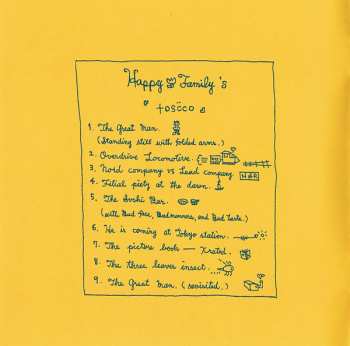 Happy Family's
"toscco"
1. The Great Man.
(Standing still with folded arms.)
2. Overdrive Locomotive
3. Noid company vs Lead company.
4. Filial piety at the dawn.
5. The Sushi Bar.
(with Bad face, Badmanners, and Bad taste.)
6. He is coming at Tokyo station.
7. The picture book — Xrated.
8. The three leaver insect.
9. The Great Man. (revisited.)